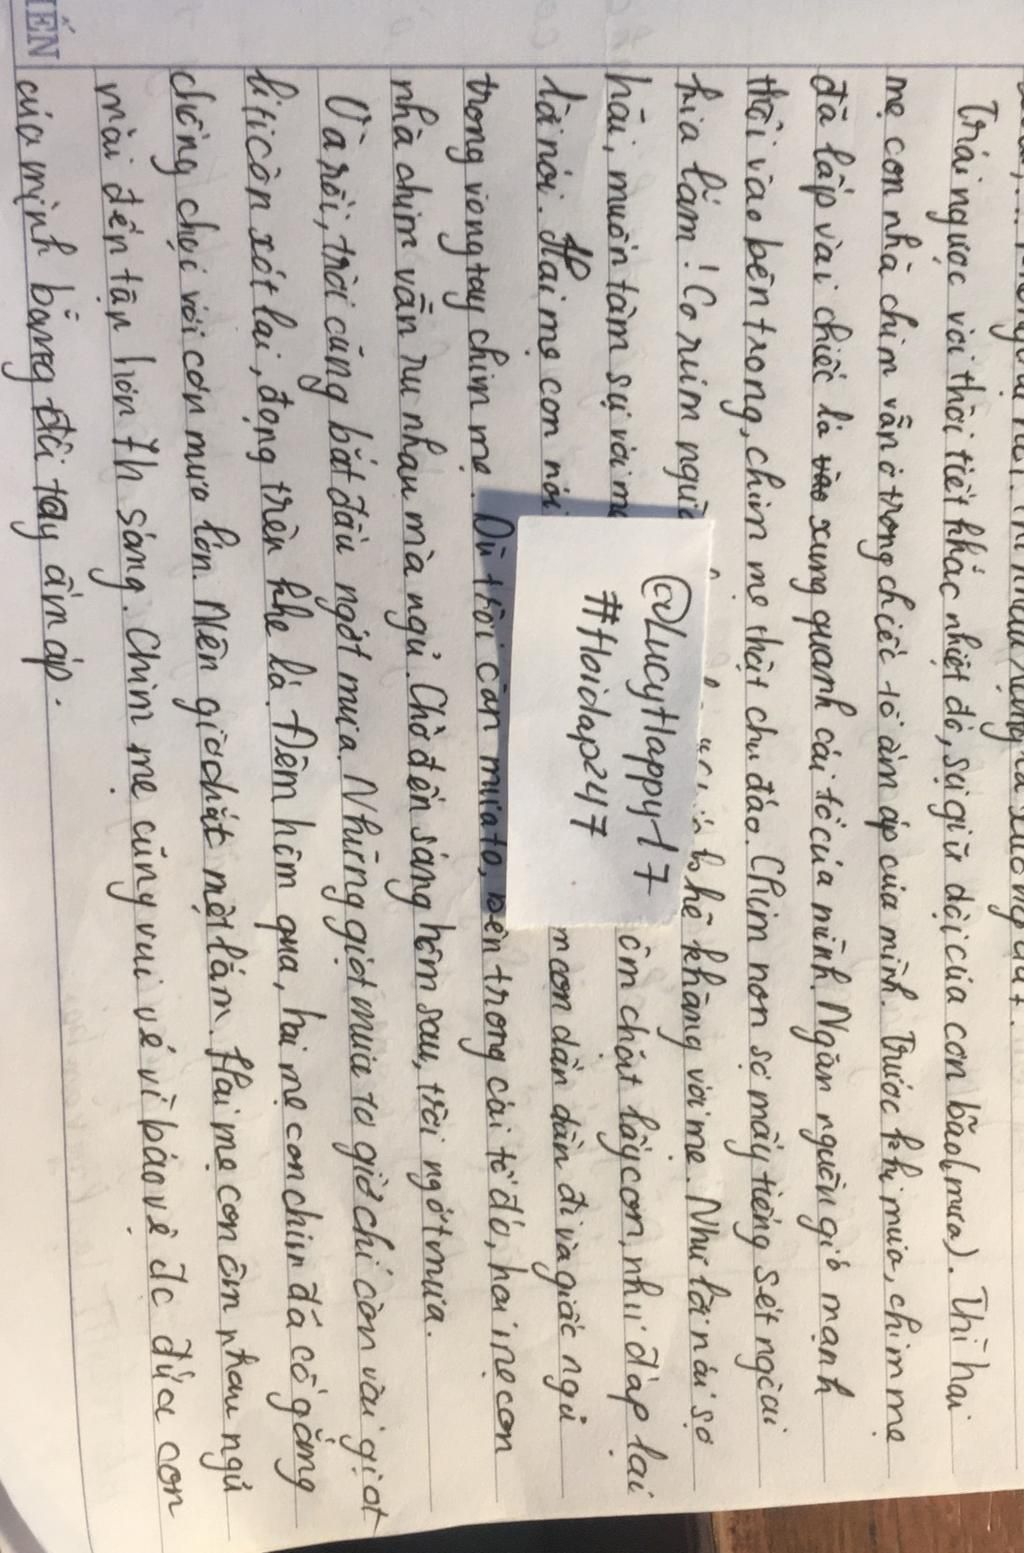 Trái ngược với thời tiết khắc nhiệt đó, sự giữ dội của cơn bão(mưa). Thì hai
mẹ con nhà chim vẫn ở trong chiếc tổ ấm áp của mình. Trước khi mưa, chim mẹ
đã lấp vài chiếc lá xung quanh cái tổ của mình. Ngăn nguồn gió mạnh
thổi vào bên trong, chim mẹ thật chu đáo. Chim non sợ mấy tiếng sét ngoài
kia lắm! Co rúm người khẽ khàng với mẹ. Như lời nói sợ
hãi, muốn tâm sự với mẹ ôm chặt lấy con, như đáp lại
lời nói. Hai mẹ con nói con dần dần đi và giấc ngủ
trong vòng tay chim mẹ. Dù trời còn mưa to, bên trong cái tổ đó, hai mẹ con
nhà chim vẫn ru nhau mà ngủ. Chờ đến sáng hôm sau, trời ngớt mưa.
Và rồi, trời cũng bắt đầu ngớt mưa. Những giọt mưa to giờ chỉ còn vài giọt
li ti còn xót lại, đọng trên khe lá. Đêm hôm qua, hai mẹ con chim đã cố gắng
chống chọi với cơn mưa lớn. Nên giờ chật một lắm. Hai mẹ con ôm nhau ngủ
mãi đến tận hơn 7h sáng. Chim mẹ cũng vui vẻ vì bảo vệ đc đứa con
của mình bằng đôi tay ấm áp.
@LucyHappy17
#Hoidap247
IẾN